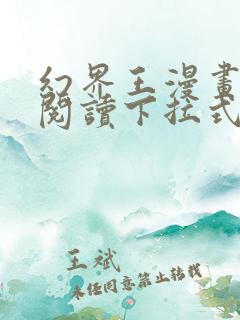 幻界王漫畫
閱讀下拉式
王斌
未任同意禁止转载